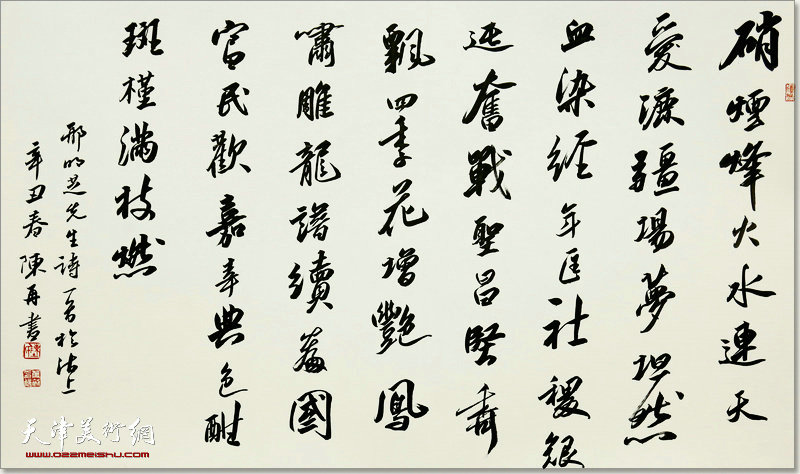 硝煙烽火水連天
愛灑疆場夢坦然
血染經年匡社稷艱
延奮戰聖昌賢壽
飄四季花增艷鳳
嘯雕龍譜續篇國
官民歡嘉年典色酣
斑槿滿枝燃
邢的芝先生詩一首於沽上
辛丑春陳再書
天津美術網
www.022meishu.com